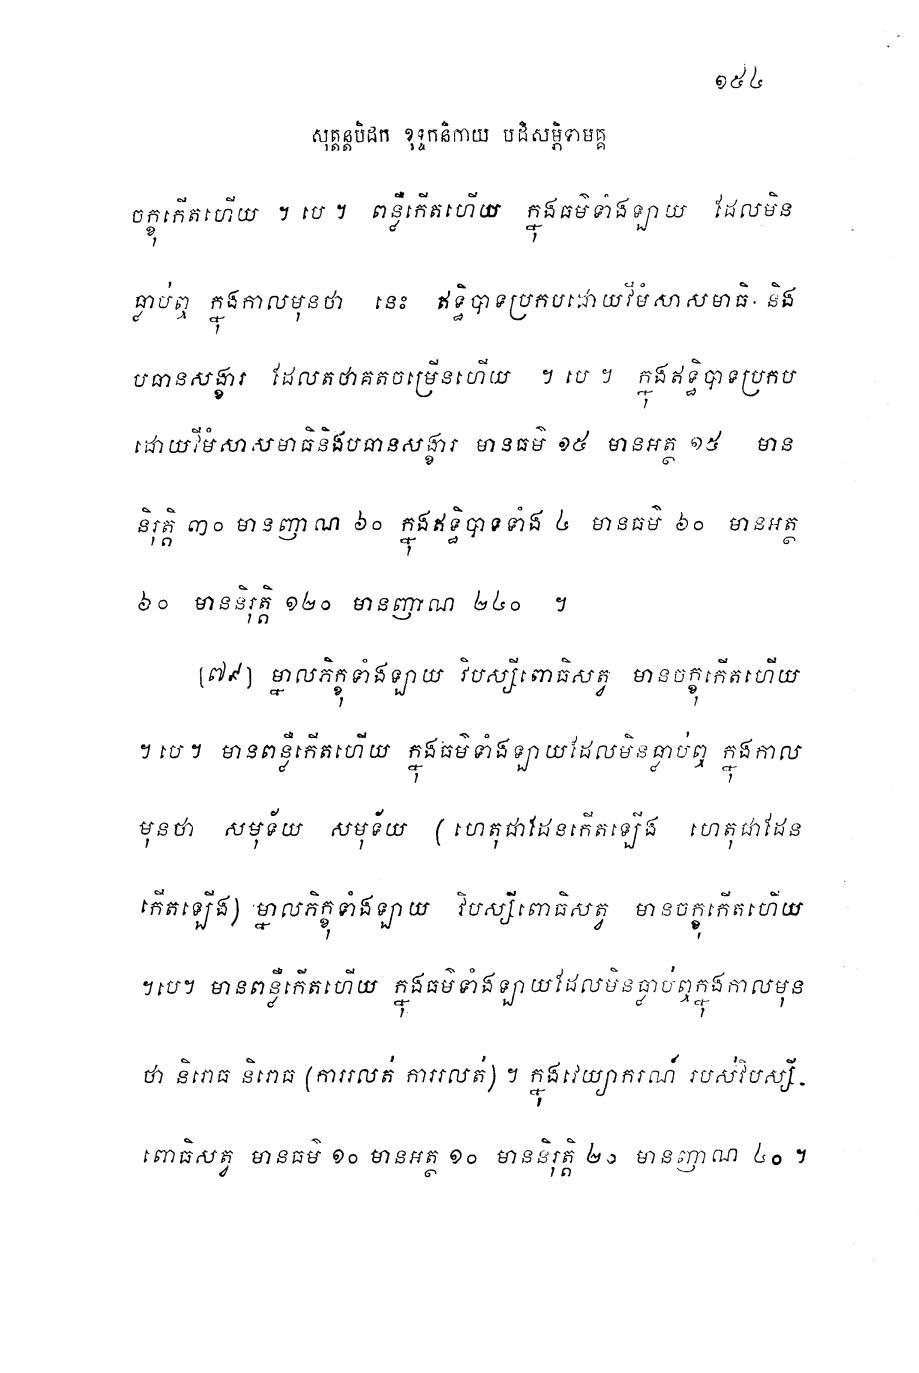 ១៥៤
សុត្តន្តបិដក ខុទ្ទកនិកាយ បដិសម្ភិទាមគ្គ
ចក្ខុកើតហើយ ។ បេ ។ ពន្លឺកើតហើយ ក្នុងធម៌ទាំងឡាយ ដែលមិន
ធ្លាប់ឮ ក្នុងកាលមុនថា នេះ ឥទ្ធិបាទប្រកបដោយវីមំសាសមាធិ និង
បធានសង្ខារ ដែលតថាគតចម្រើនហើយ ។ បេ ។ ក្នុងឥទ្ធិបាទប្រកប
ដោយវីមំសាសមាធិនិងបធានសង្ខារ មានធម៌ ១៥ មានអត្ថ ១៥ មាន
និរុត្តិ ៣០ មានញាណ ៦០ ក្នុងឥទ្ធិបាទទាំង ៤ មានធម៌ ៦០ មានអត្ថ
៦០ មាននិរុត្តិ ១២០ មានញាណ ២៤០ ។
(៧៩) ម្នាលភិក្ខុទាំងឡាយ វិបស្សីពោធិសត្វ មានចក្ខុកើតហើយ
។ បេ ។ មានពន្លឺកើតហើយ ក្នុងធម៌ទាំងឡាយដែលមិនធ្លាប់ឮ ក្នុងកាល
មុនថា សមុទ័យ សមុទ័យ ( ហេតុជាដែនកើតឡើង ហេតុជាដែន
កើតឡើង) ម្នាលភិក្ខុទាំងឡាយ វិបស្សីពោធិសត្វ មានចក្ខុកើតហើយ
។បេ។ មានពន្លឺកើតហើយ ក្នុងធម៌ទាំងឡាយដែលមិនធ្លាប់ឮក្នុងកាលមុន
ថា និរោធ និរោធ (ការរលត់ ការរលត់) ។ ក្នុងវេយ្យាករណ៍ របស់វិបស្សី-
ពោធិសត្វ មានធម៌ ១០ មានអត្ថ ១០ មាននិរុត្តិ ២០ មានញាណ ៤០ ។